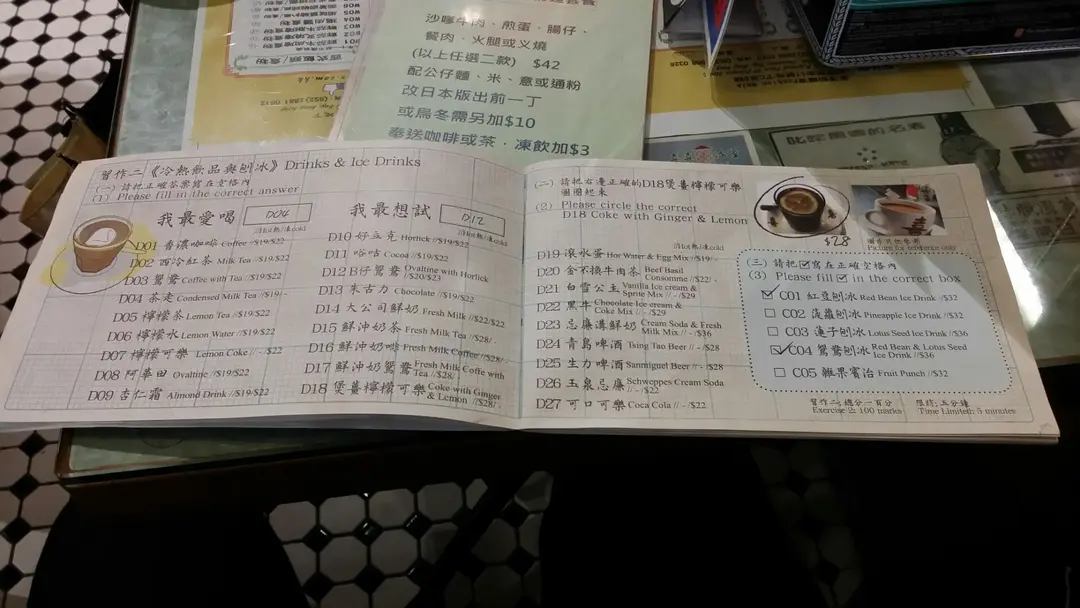 沙嗲牛肉、煎蛋、腸仔、
餐肉、火腿或叉燒
(以上任選二款) $42
配公仔麵、米、意或通粉
改日本版出前一丁
或烏冬需另加$10
奉送咖啡或茶，凍飲加$3
習作二《冷熱飲品與刨冰》Drinks & Ice Drinks
(一) 請把正確答案寫在空格內
(1) Please fill in the correct answer
我最愛喝 D04
//Hot熱/凍cold
D01 香濃咖啡 Coffee //$19/$22
D02 西冷紅茶 Milk Tea //$19/$22
D03 鴛鴦 Coffee with Tea //$19/$22
D04 茶走 Condensed Milk Tea //$19/ -
D05 檸檬茶 Lemon Tea //$19/$22
D06 檸檬水 Lemon Water //$19/$22
D07 檸檬可樂 Lemon Coke // - /$22
D08 阿華田 Ovaltine //$19/$22
D09 杏仁霜 Almond Drink //$19/$22
我最想試 D12
//Hot熱/凍cold
D10 好立克 Horlick //$19/$22
D11 唂咕 Cocoa //$19/$22
D12 B仔鴛鴦 Ovaltine with Horlick //$20/$23
D13 朱古力 Chocolate //$19/$22
D14 大公司鮮奶 Fresh Milk //$22/$22
D15 鮮沖奶茶 Fresh Milk Tea //$28/ -
D16 鮮沖奶啡 Fresh Milk Coffee //$28/ -
D17 鮮沖奶鴛鴦 Fresh Milk Coffe with Tea //$28/ -
D18 煲薑檸檬可樂 Coke with Ginger & Lemon //$28/ -
(二) 請把右邊正確的D18煲薑檸檬可樂
圈圈起來
(2) Please circle the correct
D18 Coke with Ginger & Lemon
//Hot熱/凍cold
D19 滾水蛋 Hor Water & Egg Mix //$19/ -
D20 金不換牛肉茶 Beef Basil Consomme //$22/ -
D21 白雪公主 Vanilla Ice cream & Sprite Mix // - /$29
D22 黑牛 Chocolate Ice cream & Coke Mix // - /$29
D23 忌廉溝鮮奶 Cream Soda & Fresh Milk Mix // - /$29
D24 青島啤酒 Tsing Tao Beer // - /$28
D25 生力啤酒 Sanmiguel Beer // - /$28
D26 玉泉忌廉 Schweppes Cream Soda // - /$22
D27 可口可樂 Coca Cola // - /$22
$28
圖片只供參考
Picture for reference only
(三) 請把☑寫在正確空格內
(3) Please fill ☑ in the correct box
☑ C01 紅豆刨冰 Red Bean Ice Drink //$32
☐ C02 菠蘿刨冰 Pineapple Ice Drink //$32
☐ C03 蓮子刨冰 Lotus Seed Ice Drink //$36
☑ C04 鴛鴦刨冰 Red Bean & Lotus Seed Ice Drink //$36
☐ C05 雜果賓治 Fruit Punch //$32
習作二:總分一百分 限時:五分鐘
Exercise 2: 100 marks Time Limited: 5 minutes